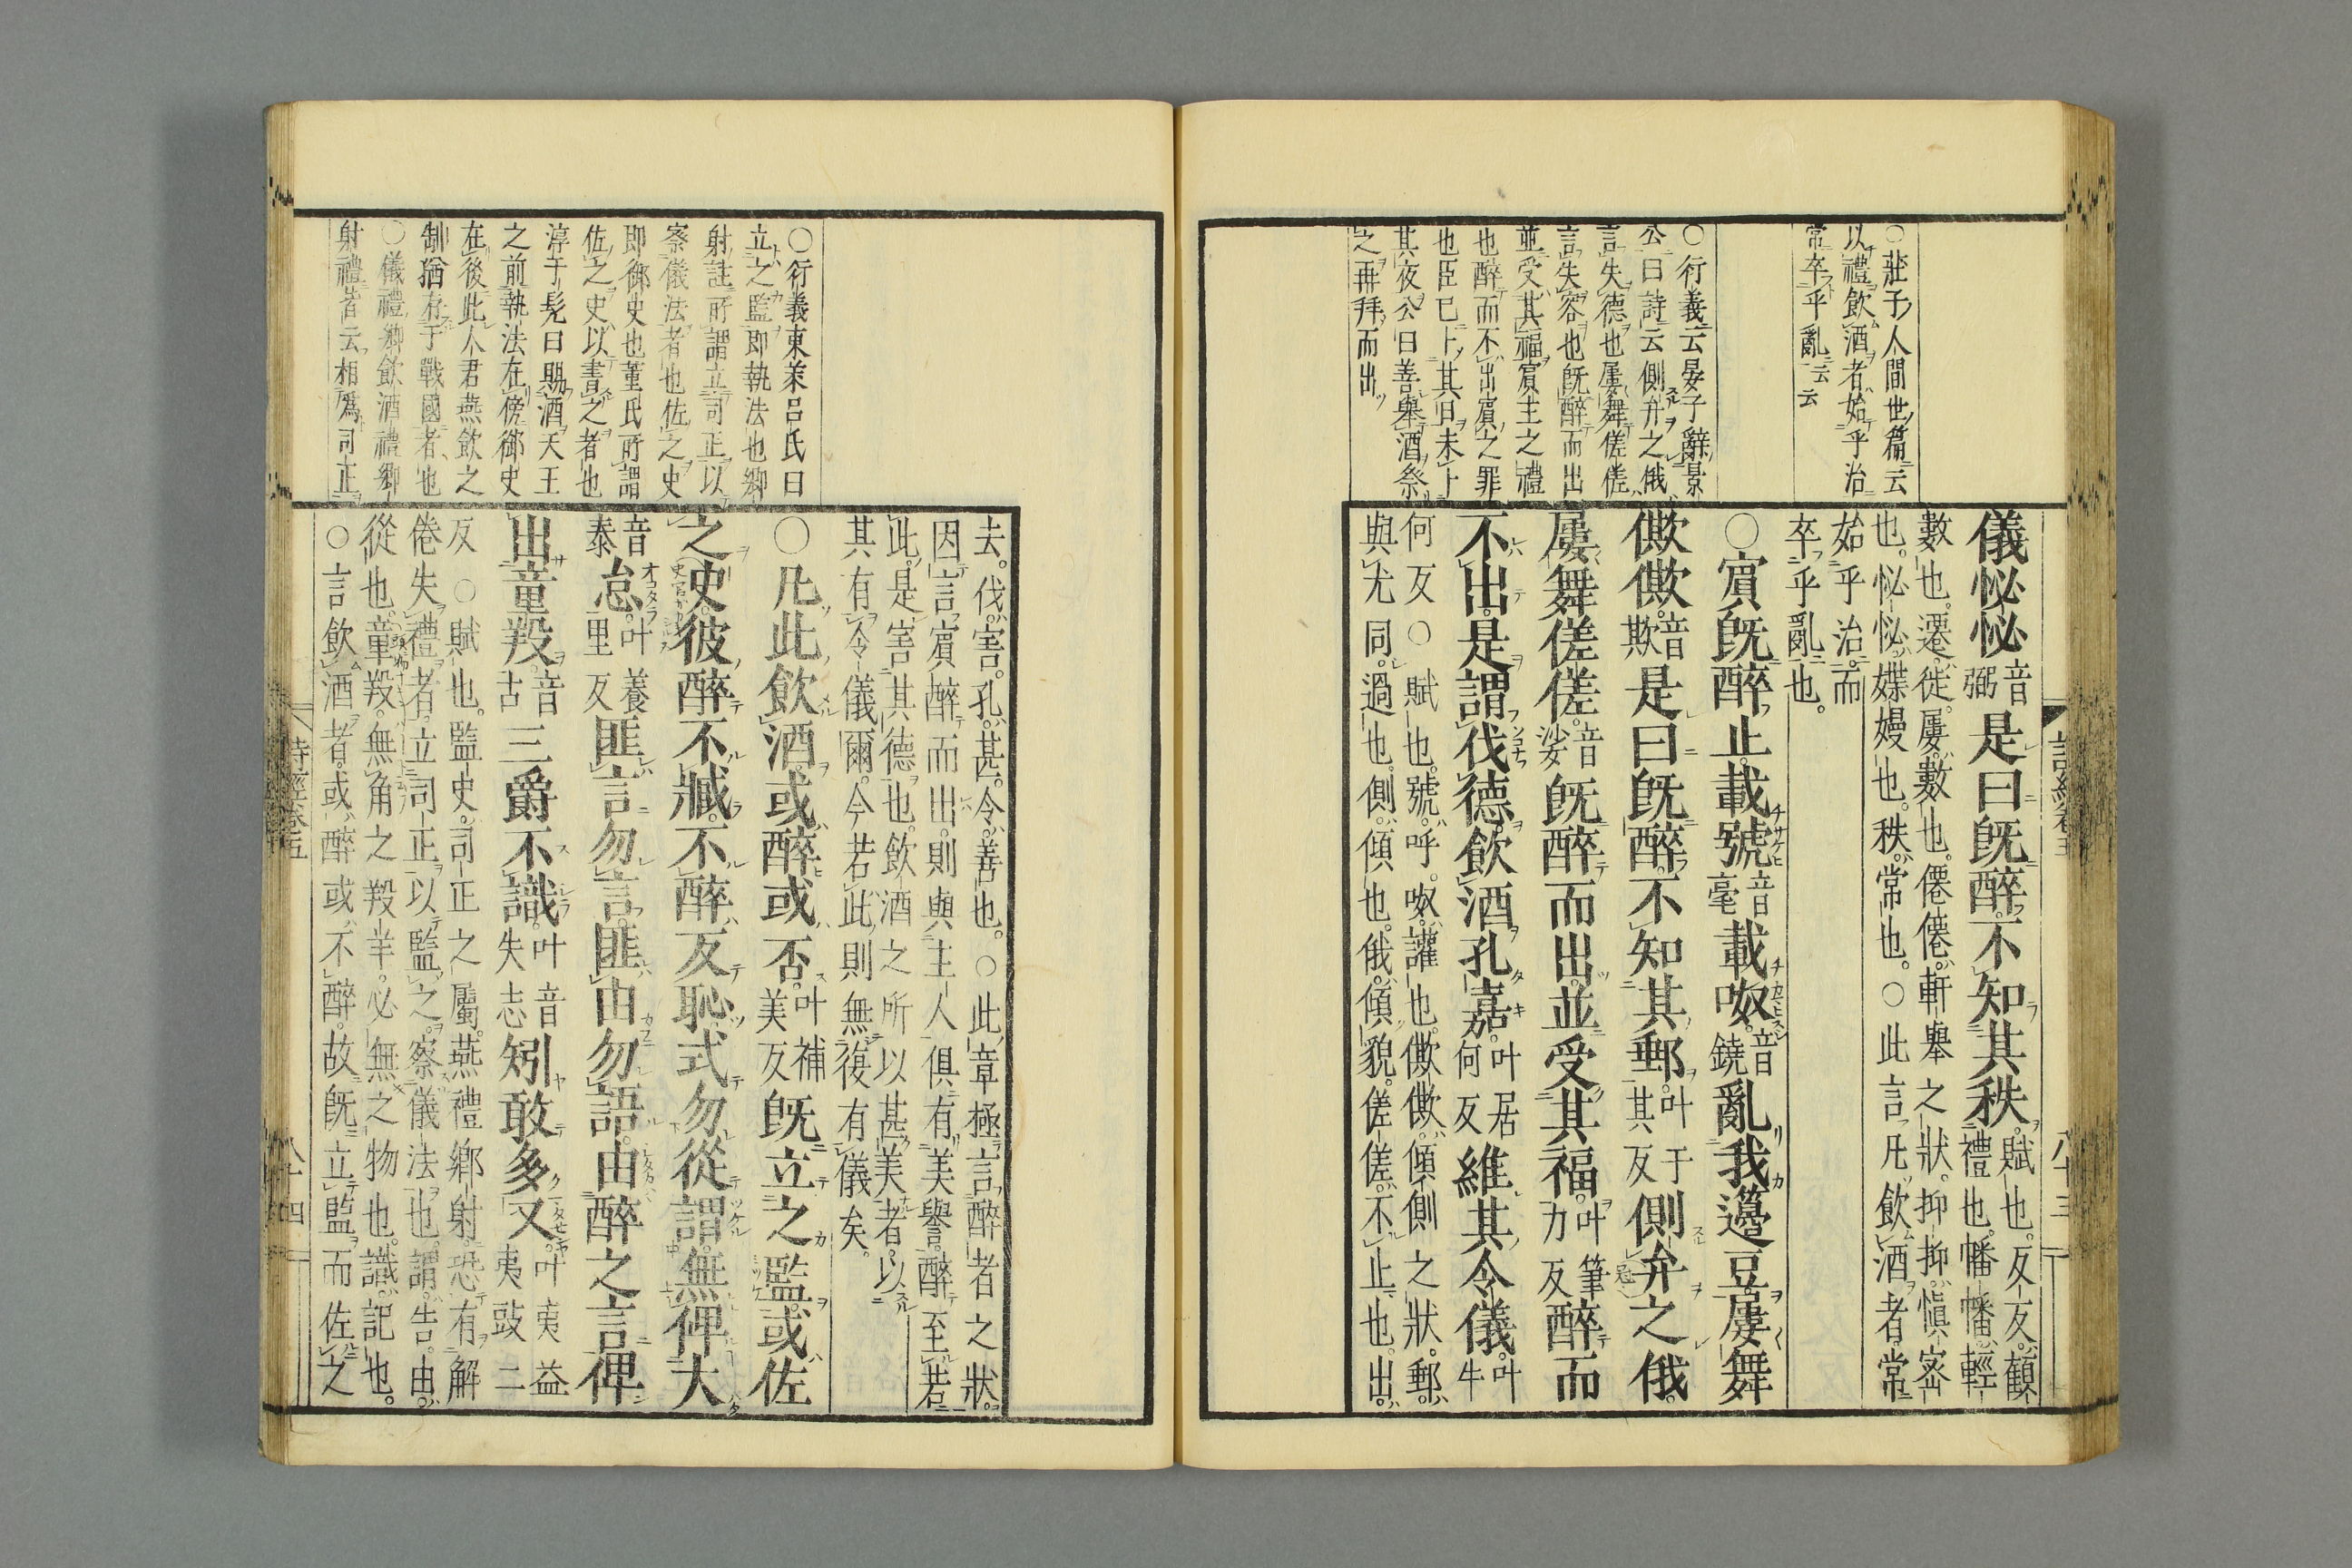 ○莊子人間世篇云
以禮飲酒者始乎治
常卒乎亂云云
○衍義云晏子辭景
公曰詩云側弁之俄
言失德也屢舞傞傞
言失容也旣醉而出
並受其福賓主之禮
也醉而不出賓之罪
也臣已卜其日未卜
其夜公曰善舉酒祭
之再拜而出
儀怭怭音弼是曰旣醉不知其秩賦也反反顧
禮也幡幡輕
數也遷徙屢數也僊僊軒舉之狀抑抑愼密
也怭怭媟嫚也秩常也○此言凡飲酒者常
始乎治而
卒乎亂也
○賓旣醉止載號音毫載呶音鐃亂我籩豆屢舞
僛僛音欺是曰旣醉不知其郵叶于其反側弁之俄
屢舞傞傞音娑旣醉而出並受其福叶筆力反醉而
不出是謂伐德飲酒孔嘉叶居何反維其令儀叶牛
何反○賦也號呼呶讙也僛僛傾側之狀郵
與尤同過也側傾也俄傾貌傞傞不止也出
去伐害孔甚令善也○此章極言醉者之狀
因言賓醉而出則與主人俱有美譽醉至若
此是害其德也飲酒之所以甚美者以
其有令儀爾今若此則無復有儀矣
○凡此飲酒或醉或否叶補美反旣立之監或佐
之史彼醉不臧不醉反恥式勿從謂無俾大
音泰怠叶養里反匪言勿言匪由勿語由醉之言俾
出童羖音古三爵不識叶音失志矧敢多又叶夷益夷豉二
反○賦也監史司正之屬燕禮鄉射恐有解
倦失禮者立司正以監之察儀法也謂告由
從也童羖無角之羖羊必無之物也識記也
○言飲酒者或醉或不醉故旣立監而佐之
○衍義東萊呂氏曰
立之監即執法也鄉
射註所謂立司正以
察儀法者也佐之史
即御史也董氏所謂
佐之史以書之者也
淳于髡曰賜酒天王
之前執法在傍御史
在後此人君燕飲之
制猶有于戰國者也
○儀禮鄉飲酒禮鄉
射禮皆云相爲司正
詩經卷五
八十三
詩經卷五
八十四